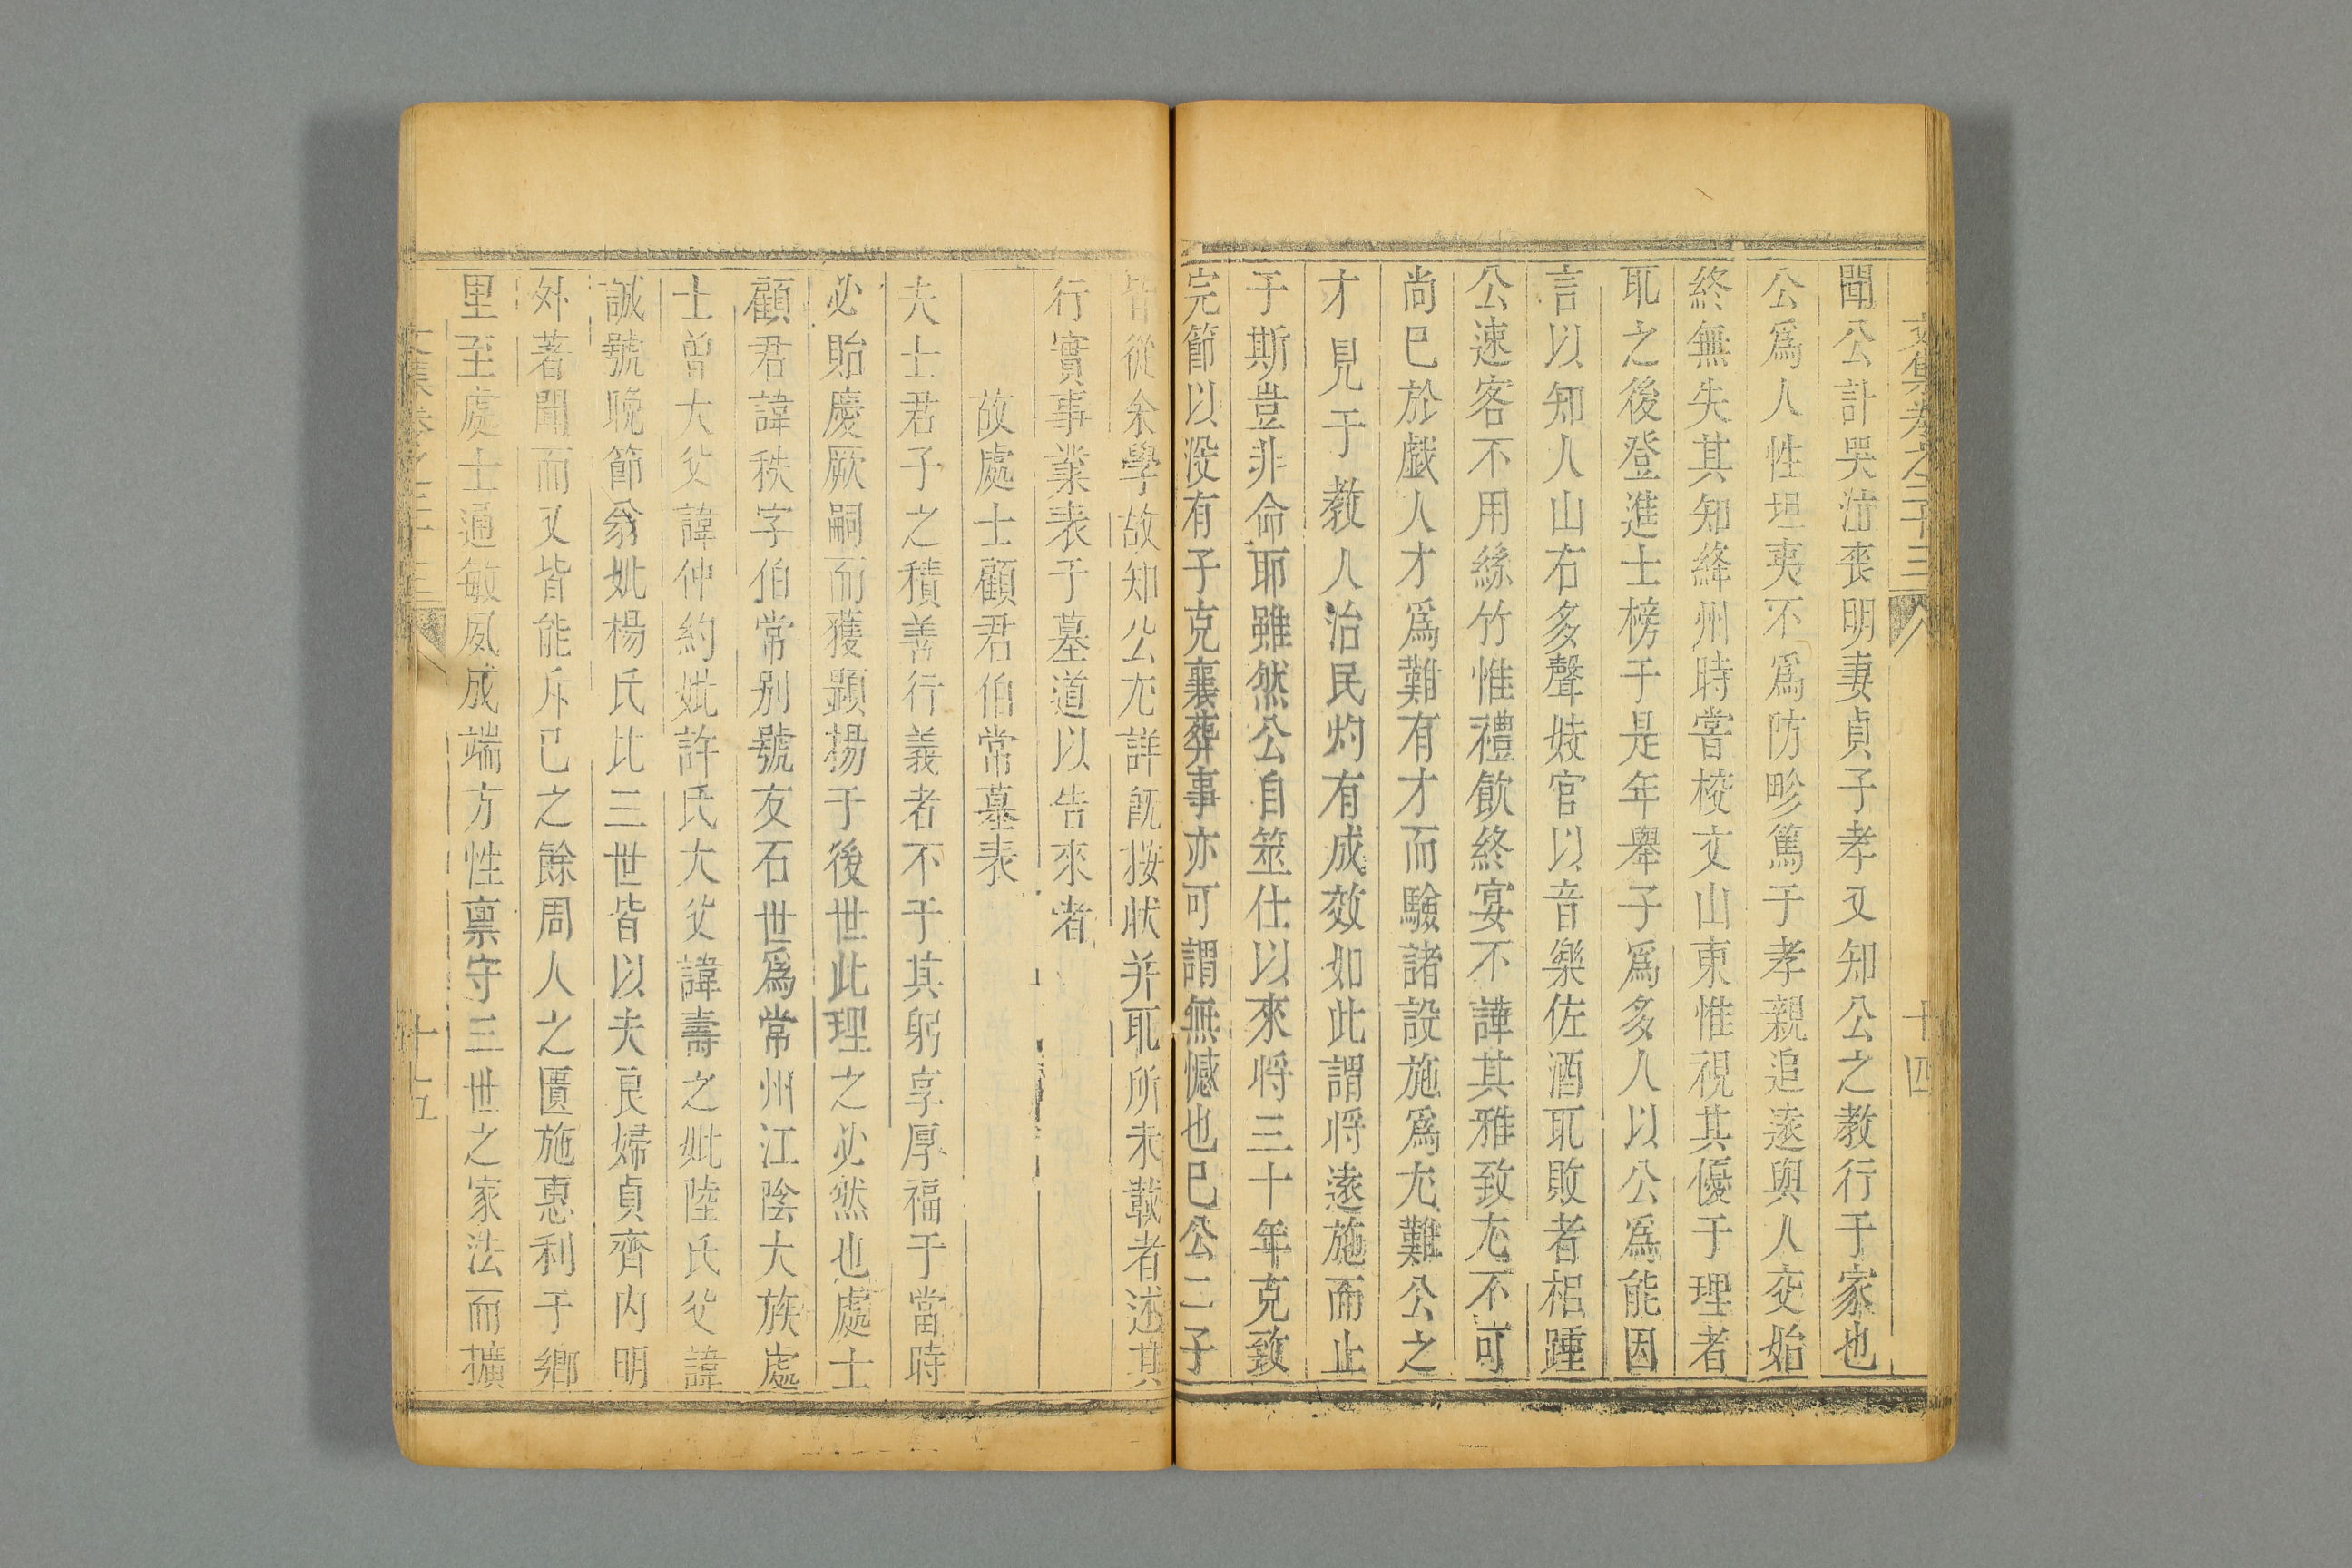 文集卷之二十三
十四
聞公訃哭泣喪明妻貞子孝又知公之教行于家也
公爲人性坦夷不爲防畛篤于孝親追遠與人交始
終無失其知絳州時嘗校文山東惟視其優于理者
取之後登進士榜于是年舉子爲多人以公爲能因
言以知人山右多聲妓官以音樂佐酒取敗者相踵
公速客不用絲竹惟禮飲終宴不譁其雅致尤不可
尚巳於戲人才爲難有才而驗諸設施爲尤難公之
才見于教人治民灼有成效如此謂將遠施而止
于斯豈非命耶雖然公自筮仕以來将三十年克致
完節以没有子克襄葬事亦可謂無憾也巳公二子
皆從余學故知公尤詳既按狀并取所未載者述其
行實事業表于墓道以告來者
故處士顧君伯常墓表
夫士君子之積善行義者不于其躬享厚福于當時
必貽慶厥嗣而獲顯揚于後世此理之必然也處士
顧君諱秩字伯常别號友石世爲常州江陰大族處
士曽大父諱仲約妣許氏大父諱壽之妣陸氏父諱
誠號晚節翁妣楊氏比三世皆以夫良婦貞齊内明
外著聞而又皆能斥巳之餘周人之匱施惠利于鄉
里至處士通敏夙成端方性禀守三世之家法而擴
文集卷之二十三
十五